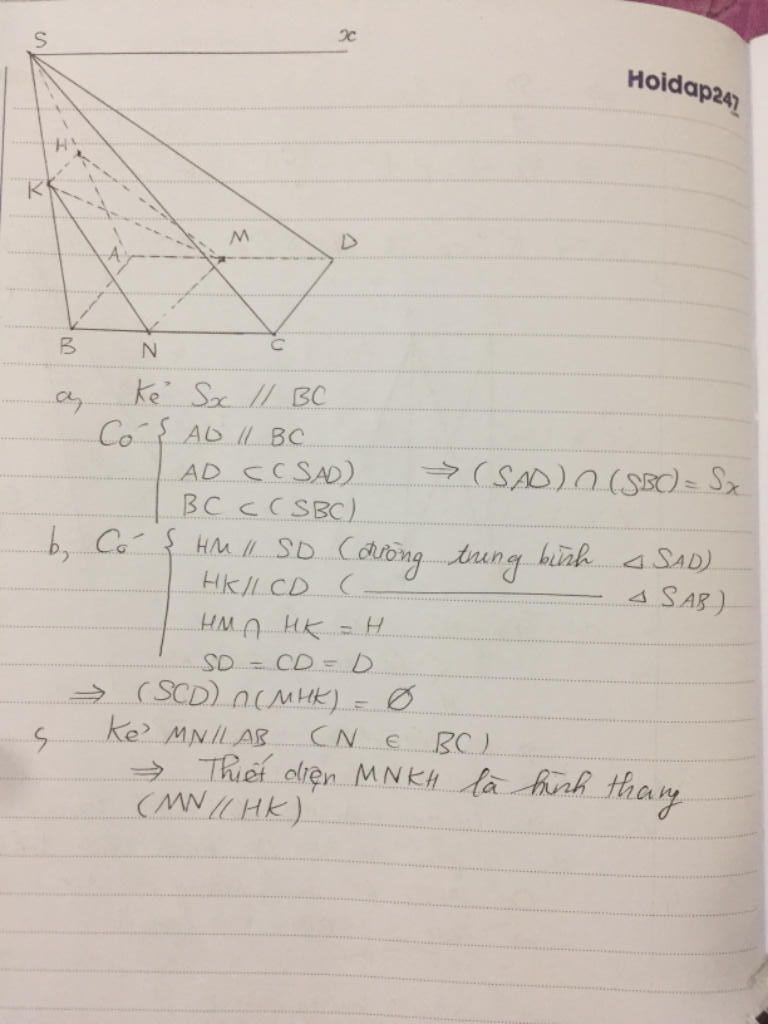 S x
Hoidap247
H
K
M D
A
B N C
a, Kẻ Sx // BC
Có { AD // BC
AD ⊂ (SAD) ⇒ (SAD) ∩ (SBC) = Sx
BC ⊂ (SBC)
b, Có { HM // SD (đường trung bình △ SAD)
HK // CD ( ———————— △ SAB)
HM ∩ HK = H
SD = CD = D
⇒ (SCD) ∩ (MHK) = ∅
Kẻ MN // AB (N ∈ BC)
⇒ Thiết diện MNKH là hình thang
(MN // HK)